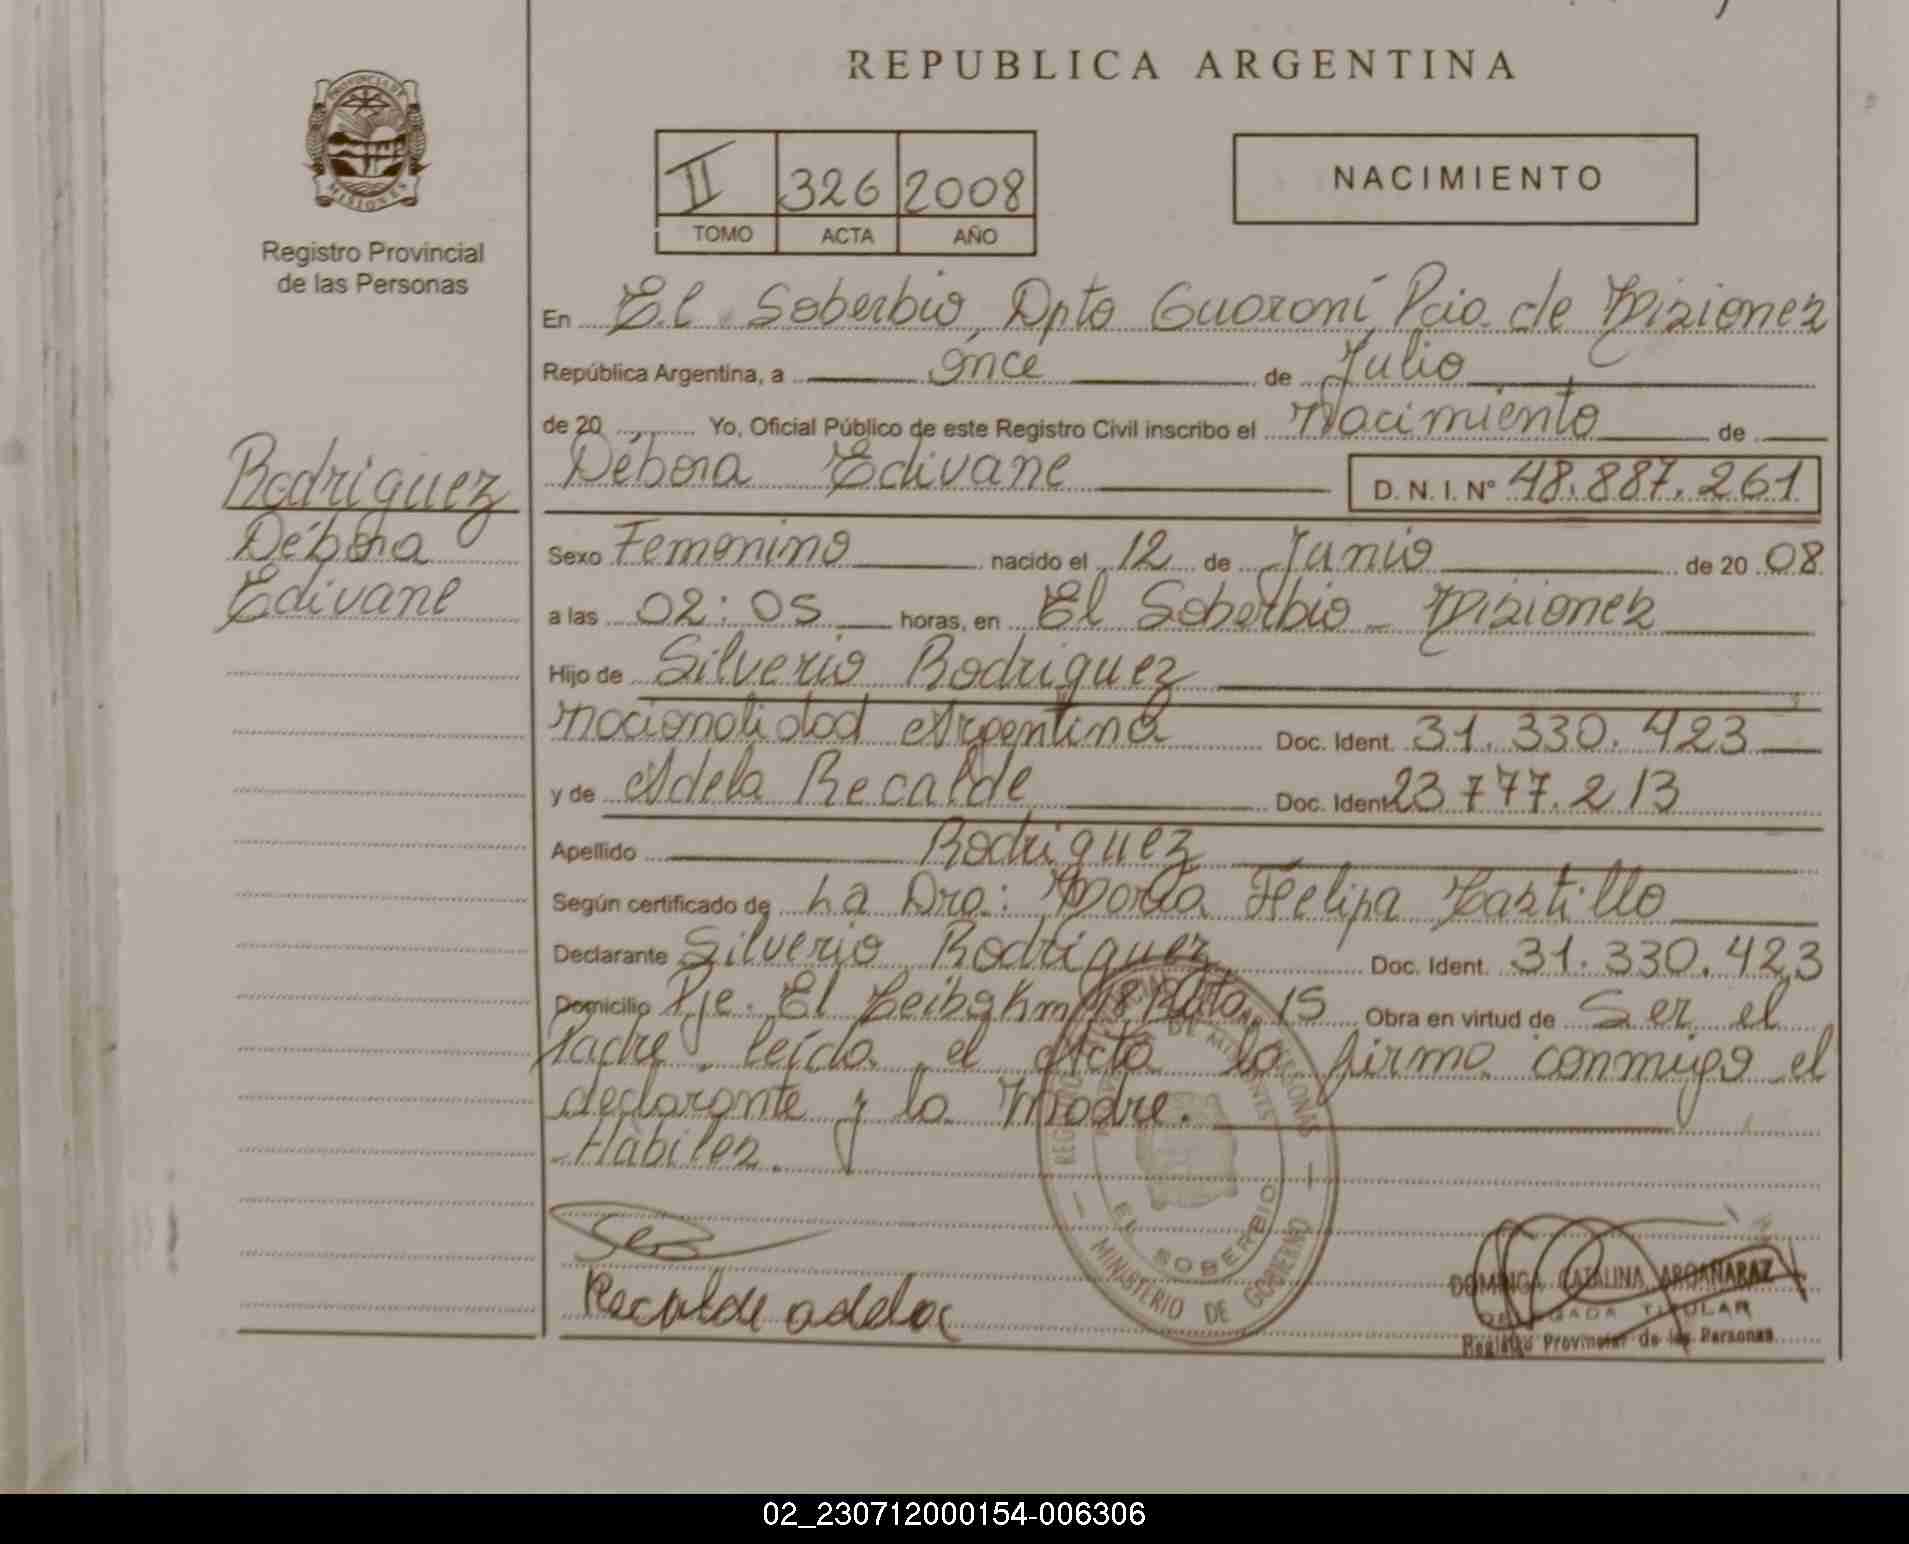 REPUBLICA ARGENTINA
PROVINCIA DE MISIONES
Registro Provincial
de las Personas
II 326 2008
TOMO ACTA AÑO
NACIMIENTO
En El Soberbio, Dpto Guaraní Pcia. de Misiones
República Argentina, a Once de Julio
de 20 Yo, Oficial Público de este Registro Civil inscribo el Nacimiento de
Débora Edivane D. N. I. N° 48.887.261
Rodriguez
Débora
Edivane
Sexo Femenino nacido el 12 de Junio de 20 08
a las 02:05 horas, en El Soberbio - Misiones
Hijo de Silverio Rodriguez
Nacionalidad Argentina Doc. Ident. 31.330.423
y de Adela Recalde Doc. Ident. 23.777.213
Apellido Rodriguez
Según certificado de La Dra: Felipa Castillo
Declarante Silverio Rodriguez Doc. Ident. 31.330.423
Domicilio Pje. El Ceibo Km 18 Ruta 15 Obra en virtud de Ser el
Padre leída el Acta la firma conmigo el
declarante y la Madre.
Hábiles.
Recalde adela
REGISTRO PROVINCIAL DE LAS PERSONAS
MINISTERIO DE GOBIERNO
EL SOBERBIO
DOMINGA CATALINA ARGAÑARAZ
DELEGADA TITULAR
Registro Provincial de las Personas
02_230712000154-006306